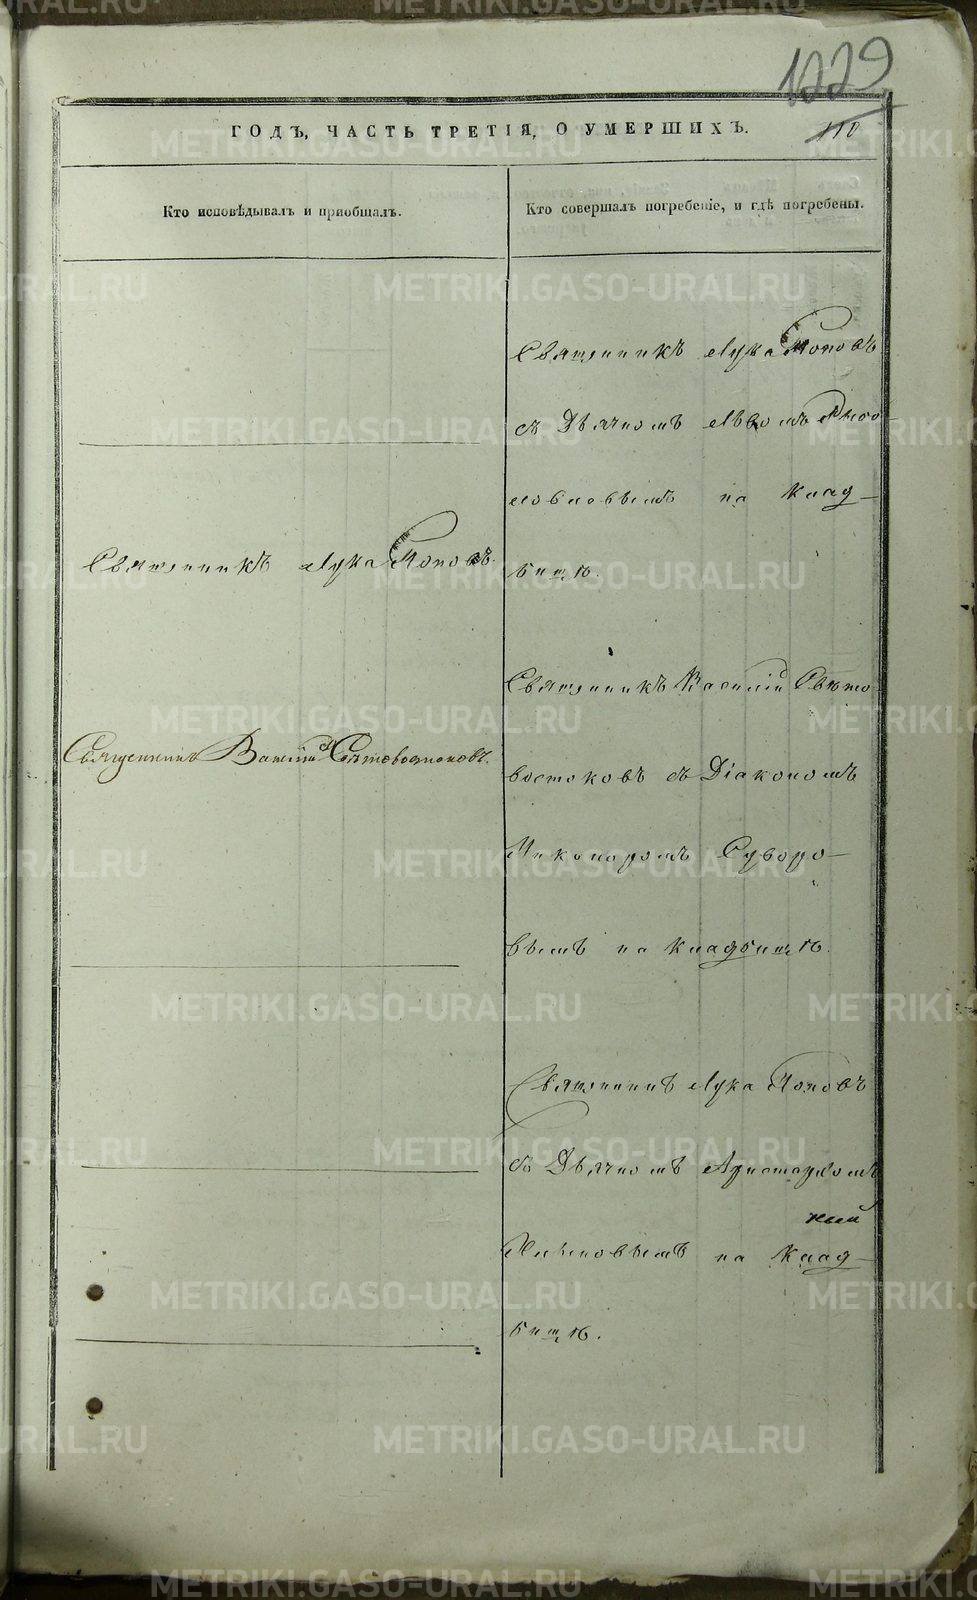 1229
110
ГОДЪ, ЧАСТЬ ТРЕТІЯ, О УМЕРШИХЪ.
Кто исповѣдывалъ и приобщалъ.
Кто совершалъ погребеніе, и гдѣ погребены.
Священникъ Лука Поповъ
Священникъ Василій Свѣтовостоковъ.
Священникъ Лука Поповъ
съ Дьячкомъ Львомъ
на клад-
бищѣ.
Священникъ Василій Свѣто-
востоковъ съ Діакономъ
Никаноромъ Суворо-
вымъ на кладбищѣ.
Священникъ Лука Поповъ
съ Дьячкомъ Аристархомъ
на клад-
бищѣ.
METRIKI.GASO-URAL.RU